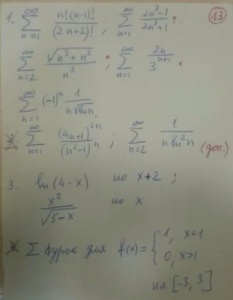 13
1. ∑_{n=1}^{∞} n!(n-1)!/(2n+2)! ; ∑_{n=1}^{∞} (2n²-1)/(2n²+1) ;
∑_{n=2}^{∞} √(n³+n²)/n³ ; ∑_{n=1}^{∞} 2n/3^{n+1} ;
∑_{n=1}^{∞} (-1)^n 1/(n√(ln n))
2. ∑_{n=1}^{∞} (4n+1)^{2n}/(n²-1)^n ; ∑_{n=2}^{∞} 1/(n ln² n) (доп.)
3. ln(4-x) по x+2 ;
x²/√(5-x) по x
∑ Фурье для f(x) = { 1, x<1
0, x>1
на [-3, 3]